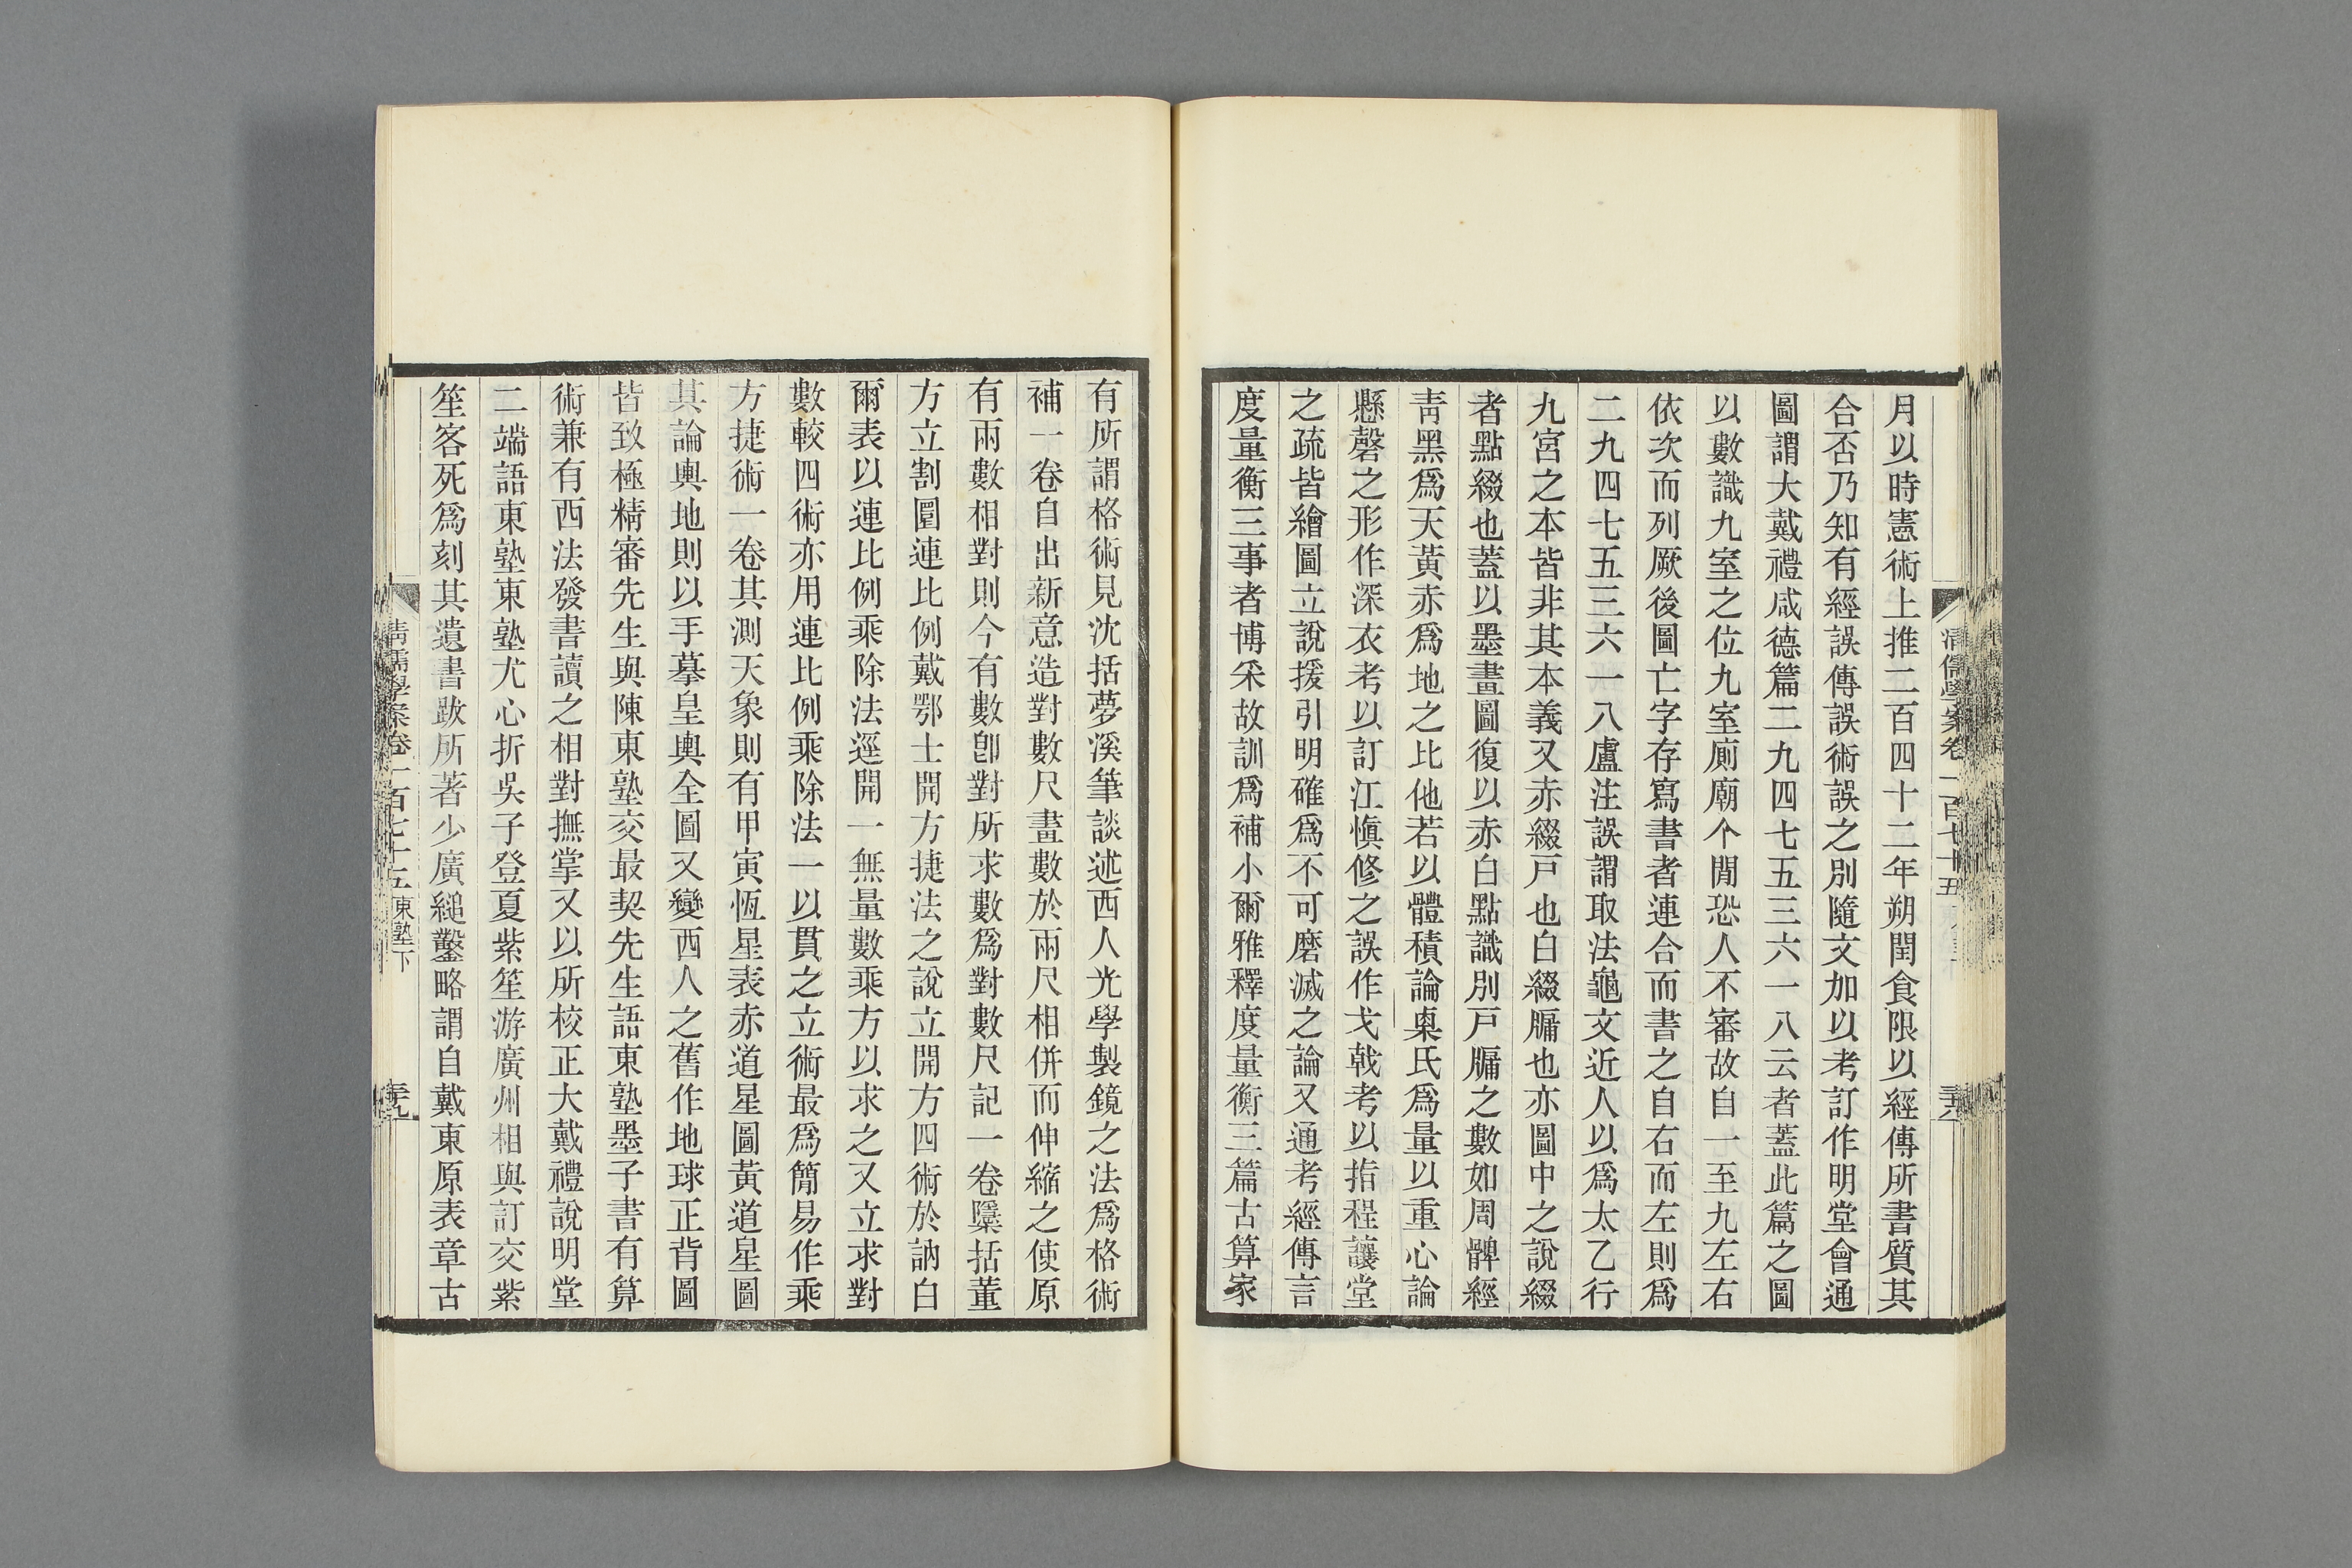 月以時憲術上推二百四十二年朔閏食限以經傳所書質其
合否乃知有經誤傳誤術誤之別隨文加以考訂作明堂會通
圖謂大戴禮咸德篇二九四七五三六一八云者蓋此篇之圖
以數識九室之位九室廁廟个閒恐人不審故自一至九左右
依次而列厥後圖亡字存寫書者連合而書之自右而左則爲
二九四七五三六一八盧注誤謂取法龜文近人以爲太乙行
九宮之本皆非其本義又赤綴戸也白綴牖也亦圖中之說綴
者點綴也蓋以墨畫圖復以赤白點識別戸牖之數如周髀經
靑黑爲天黃赤爲地之比他若以體積論㮚氏爲量以重心論
懸磬之形作深衣考以訂江愼修之誤作戈戟考以指程讓堂
之疏皆繪圖立說援引明確爲不可磨滅之論又通考經傳言
度量衡三事者博釆故訓爲補小爾雅釋度量衡三篇古算家
有所謂格術見沈括夢溪筆談述西人光學製鏡之法爲格術
補一卷自出新意造對數尺畫數於兩尺相併而伸縮之使原
有兩數相對則今有數卽對所求數爲對數尺記一卷隱括董
方立割圜連比例戴鄂士開方捷法之說立開方四術於訥白
爾表以連比例乘除法逕開一無量數乘方以求之又立求對
數較四術亦用連比例乘除法一以貫之立術最爲簡易作乘
方捷術一卷其測天象則有甲寅恆星表赤道星圖黃道星圖
其論輿地則以手摹皇輿全圖又變西人之舊作地球正背圖
皆致極精審先生與陳東塾交最契先生語東塾墨子書有算
術兼有西法發書讀之相對撫掌又以所校正大戴禮說明堂
二端語東塾東塾尤心折吳子登夏紫笙游廣州相與訂交紫
笙客死爲刻其遺書跋所著少廣縋鑿略謂自戴東原表章古
清儒學案卷一百七十五 東塾下